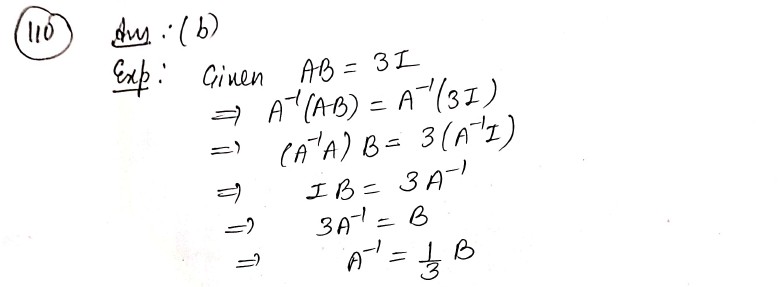 110 Ans :- (b)
Exp: Given AB = 3I
⇒ A⁻¹(AB) = A⁻¹(3I)
⇒ (A⁻¹A) B = 3(A⁻¹I)
⇒ IB = 3A⁻¹
⇒ 3A⁻¹ = B
⇒ A⁻¹ = 1/3 B